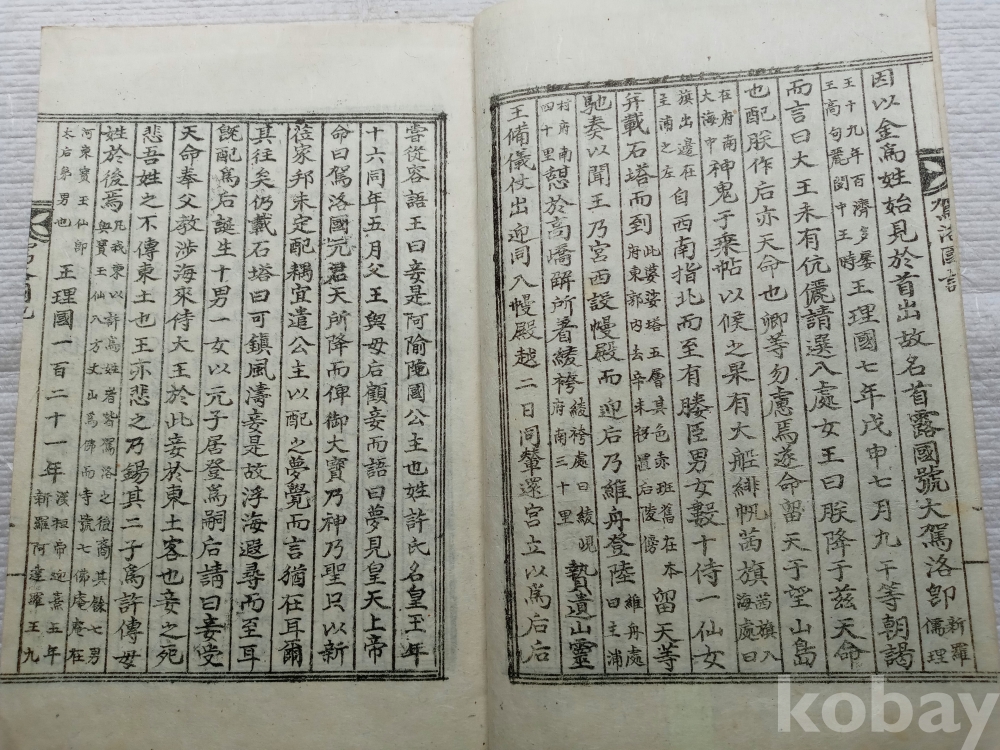 因以金爲姓始見於首出故名首露國號大駕洛卽新羅儒理
王十九年百濟多婁王高句麗閔中王時王理國七年戊申七月九干等朝謁
而言曰大王未有伉儷請選入處女王曰朕降于茲天命
也配朕作后亦天命也卿等勿慮焉遂命留天于望山島
在府南大海中神鬼子乘帖以候之果有大船緋帆茜旗茜旗入海處曰
旗出邊在主浦之左自西南指北而至有媵臣男女數十侍一仙女
幷載石塔而到此婆娑塔五層其色赤班舊在本府東郭內去辛未移置后陵傍留天等
馳奏以聞王乃宮西設幔殿而迎后乃維舟登陸維舟處曰主浦
村府南四十里憩於高嶠解所着綾袴綾袴處曰綾峴府南三十里贄遺山靈
王備儀仗出迎同入幔殿越二日同輦還宮立以爲后后
駕洛國記
嘗從容語王曰妾是阿隃陁國公主也姓許氏名皇玉年
十六同年五月父王與母后顧妾而語曰夢見皇天上帝
命曰駕洛國元君天所降而俾御大寶乃神乃聖只以新
莅家邦未定配耦宜遣公主以配之夢覺而言猶在耳爾
其往矣仍載石塔曰可鎭風濤妾是故浮海遐尋而至耳
旣配爲后誕生十男一女以元子居登爲嗣后請曰妾受
天命奉父敎涉海來侍大王於此妾於東土客也妾之死
悲吾姓之不傳東土也王亦悲之乃錫其二子爲許傳母
姓於後焉凡我東以許爲姓者皆駕洛之後裔其餘七男與寶王仙入方丈山爲佛而寺號七佛庵庵在
河東寶王仙卽太后弟男也王理國一百二十一年漢桓帝延熹五年新羅阿達羅王九
kobay